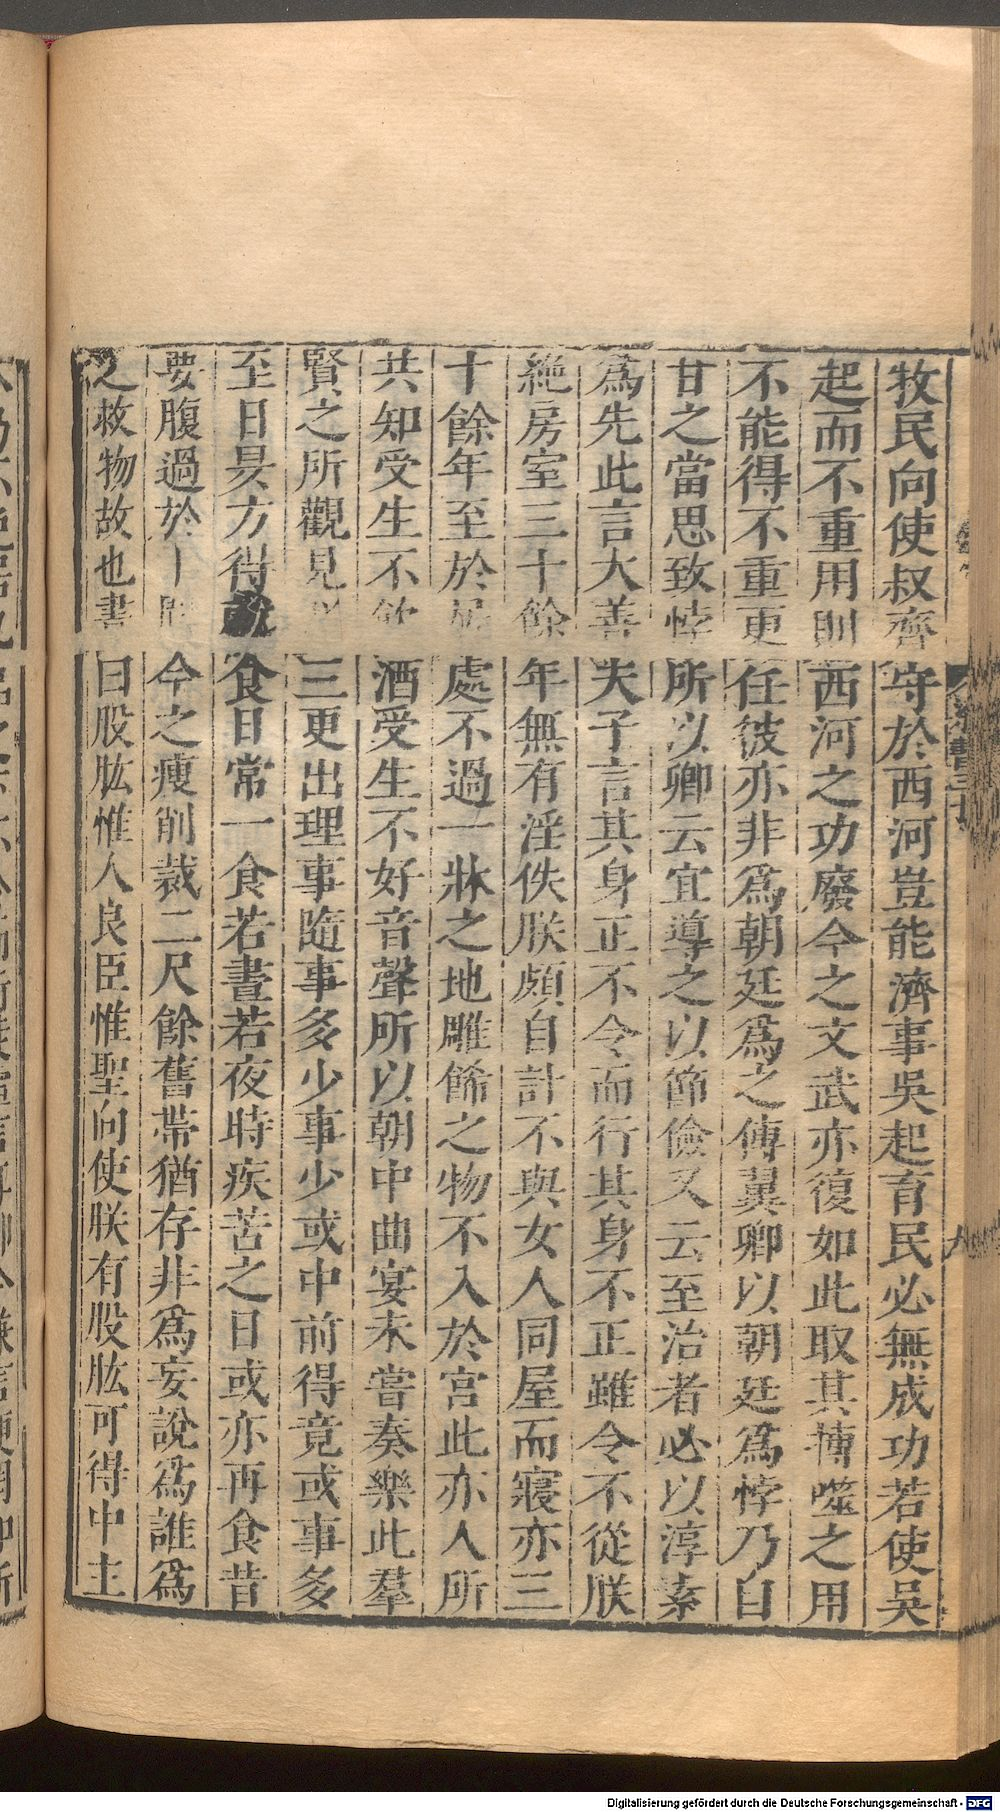 牧民向使叔齊守於西河豈能濟事吳起育民必無成功若使吳
起而不重用則西河之功廢今之文武亦復如此取其搏噬之用
不能得不重更任彼亦非爲朝廷爲之傅翼卿以朝廷爲悖乃自
甘之當思致悖所以卿云宜導之以節儉又云至治者必以淳素
爲先此言大善夫子言其身正不令而行其身不正雖令不從朕
絶房室三十餘年無有淫佚朕頗自計不與女人同屋而寢亦三
十餘年至於居處不過一牀之地雕飾之物不入於宮此亦人所
共知受生不飲酒受生不好音聲所以朝中曲宴未嘗奏樂此羣
賢之所觀見三更出理事隨事多少事少或中前得竟或事多
至日昃方得食日常一食若晝若夜時疾苦之日或亦再食昔
要腹過於十今之瘦削裁二尺餘舊帶猶存非爲妄說爲誰爲
之救物故也書曰股肱惟人良臣惟聖向使朕有股肱可得中主
梁書三十
Digitalisierung gefördert durch die Deutsche Forschungsgemeinschaft - DFG